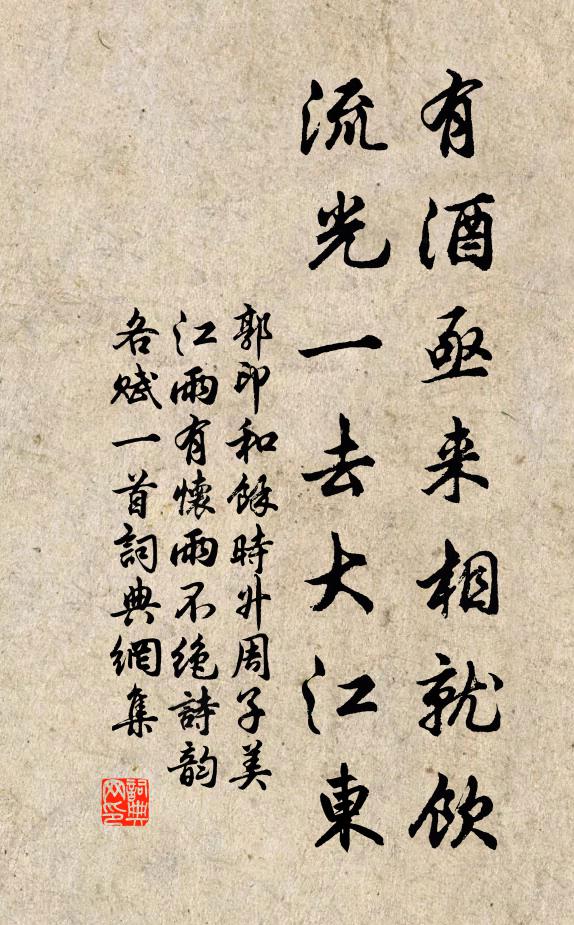 有酒亟来相就飲
流光一去大江東
郭印和餘時升周子美
江雨有懷雨不絶詩韵
各赋一首詞典網集
詞典
网印